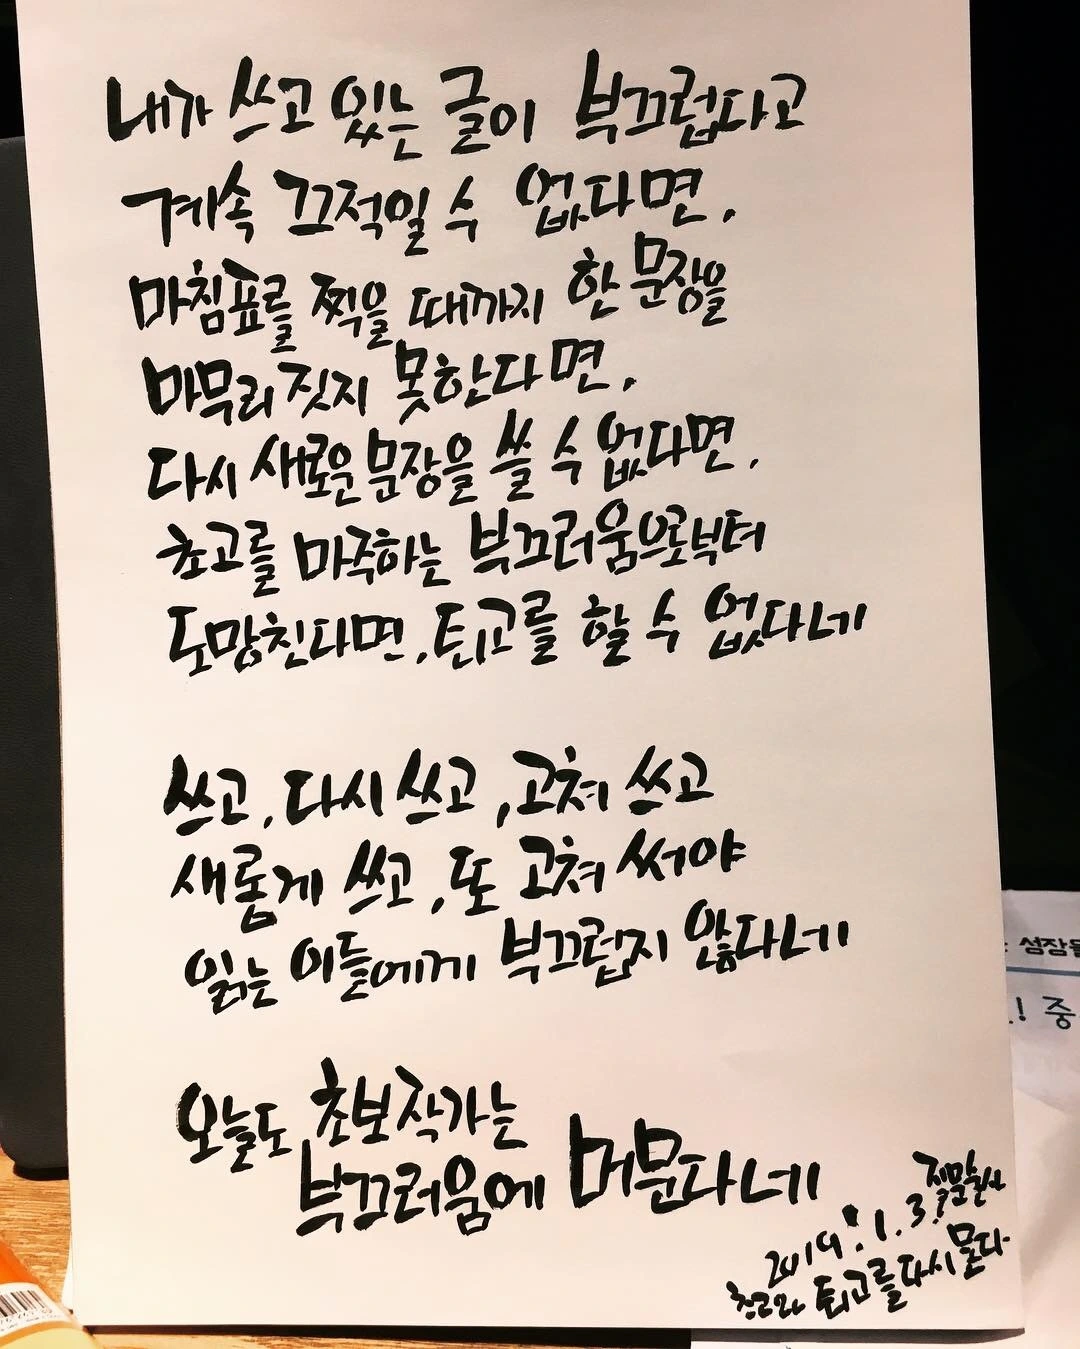 내가 쓰고 있는 글이 부끄럽다고
계속 끄적일 수 없다면,
마침표를 찍을 때까지 한 문장을
마무리 짓지 못한다면,
다시 새로운 문장을 쓸 수 없다면,
초고를 마주하는 부끄러움으로부터
도망친다면, 퇴고를 할 수 없다네
쓰고, 다시 쓰고, 고쳐 쓰고
새롭게 쓰고, 또 고쳐 써야
읽는 이들에게 부끄럽지 않다네
오늘도 초보 작가는
부끄러움에 머문다네
2019. 1. 3.
초고와 퇴고를 다시 묻다
섬잠들
! 중